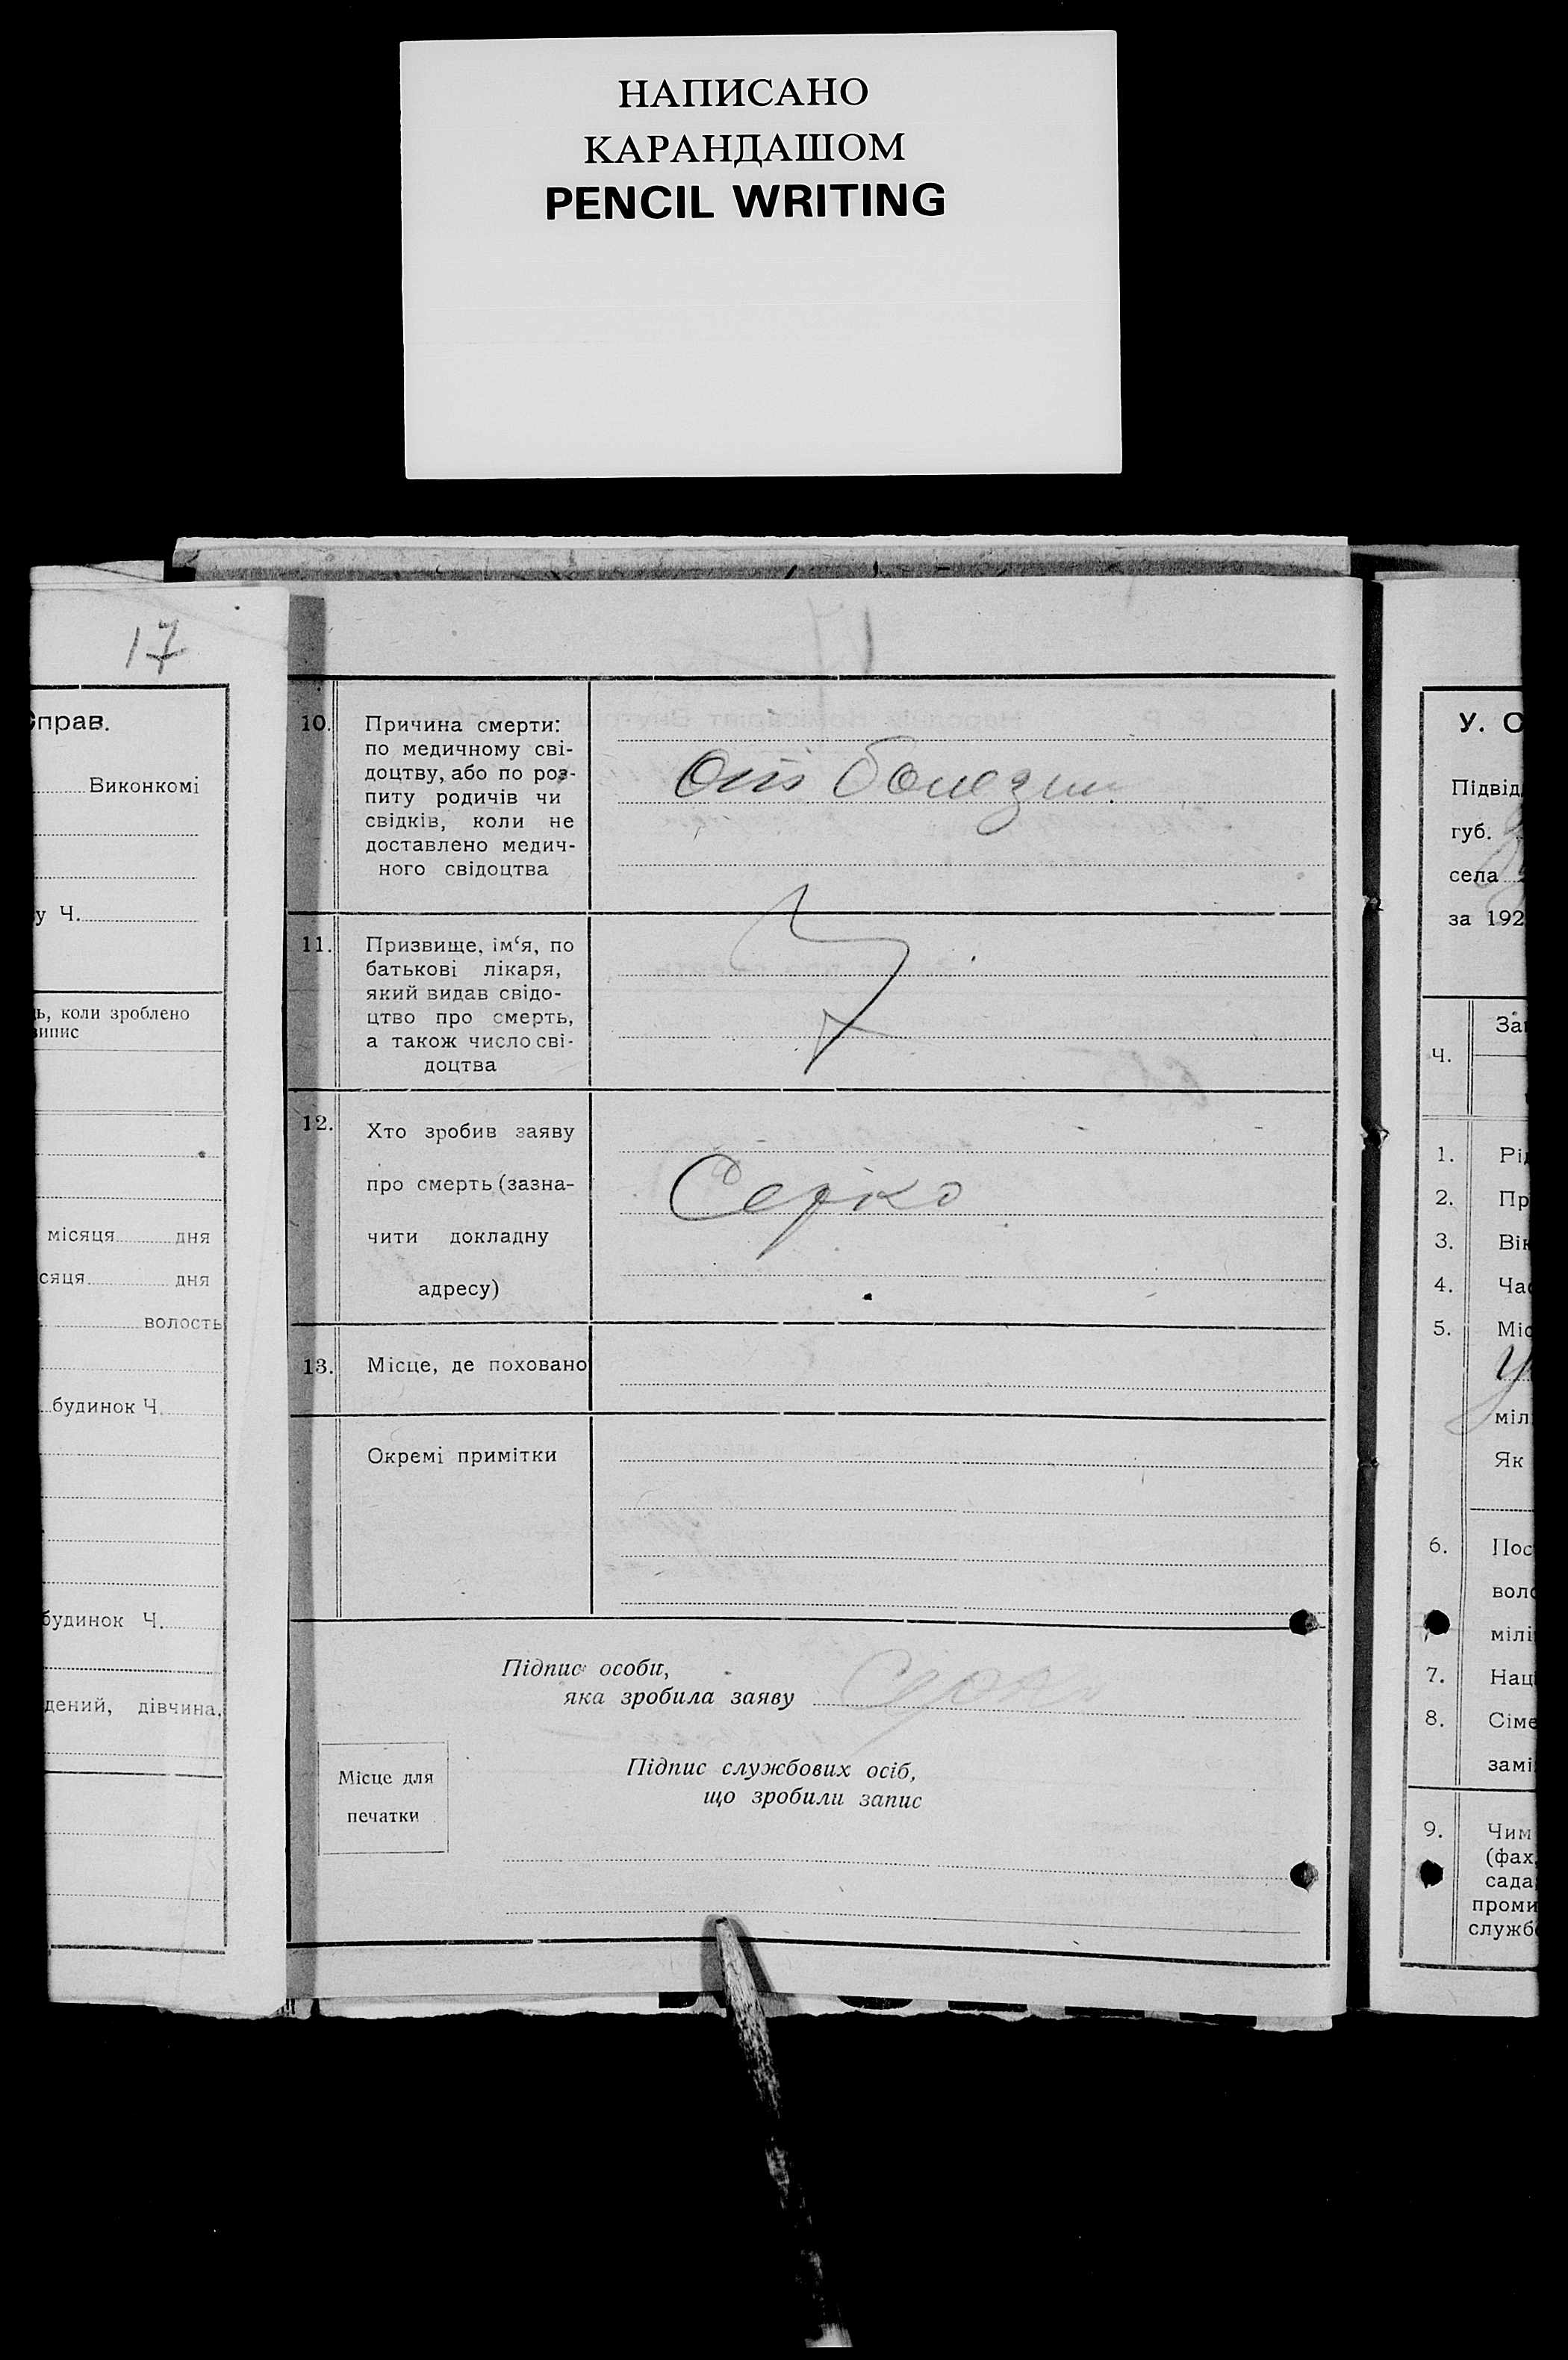 НАПИСАНО
КАРАНДАШОМ
PENCIL WRITING
17
Справ.
Виконкомі
у Ч.
ь, коли зроблено
випис
місяця дня
сяця дня
волость
будинок Ч.
будинок Ч.
дений, дівчина,
10. Причина смерти:
по медичному сві-
доцтву, або по роз-
питу родичів чи
свідків, коли не
доставлено медич-
ного свідоцтва
Отъ болезни.
11. Призвище, ім‘я, по
батькові лікаря,
який видав свідо-
цтво про смерть,
а також число сві-
доцтва
12. Хто зробив заяву
про смерть (зазна-
чити докладну
адресу)
Серко
13. Місце, де поховано
Окремі примітки
Підпис особи,
яка зробила заяву
Місце для
печатки
Підпис службових осіб,
що зробили запис
У. С
Підвід
губ.
села
за 192
Ч.
За
1. Рі
2. Пр
3. Вік
4. Час
5. Міс
міл
Як
6. Пос
воло
мілі
7. Наці
8. Сіме
замі
9. Чим
(фах,
сада
проми
службо